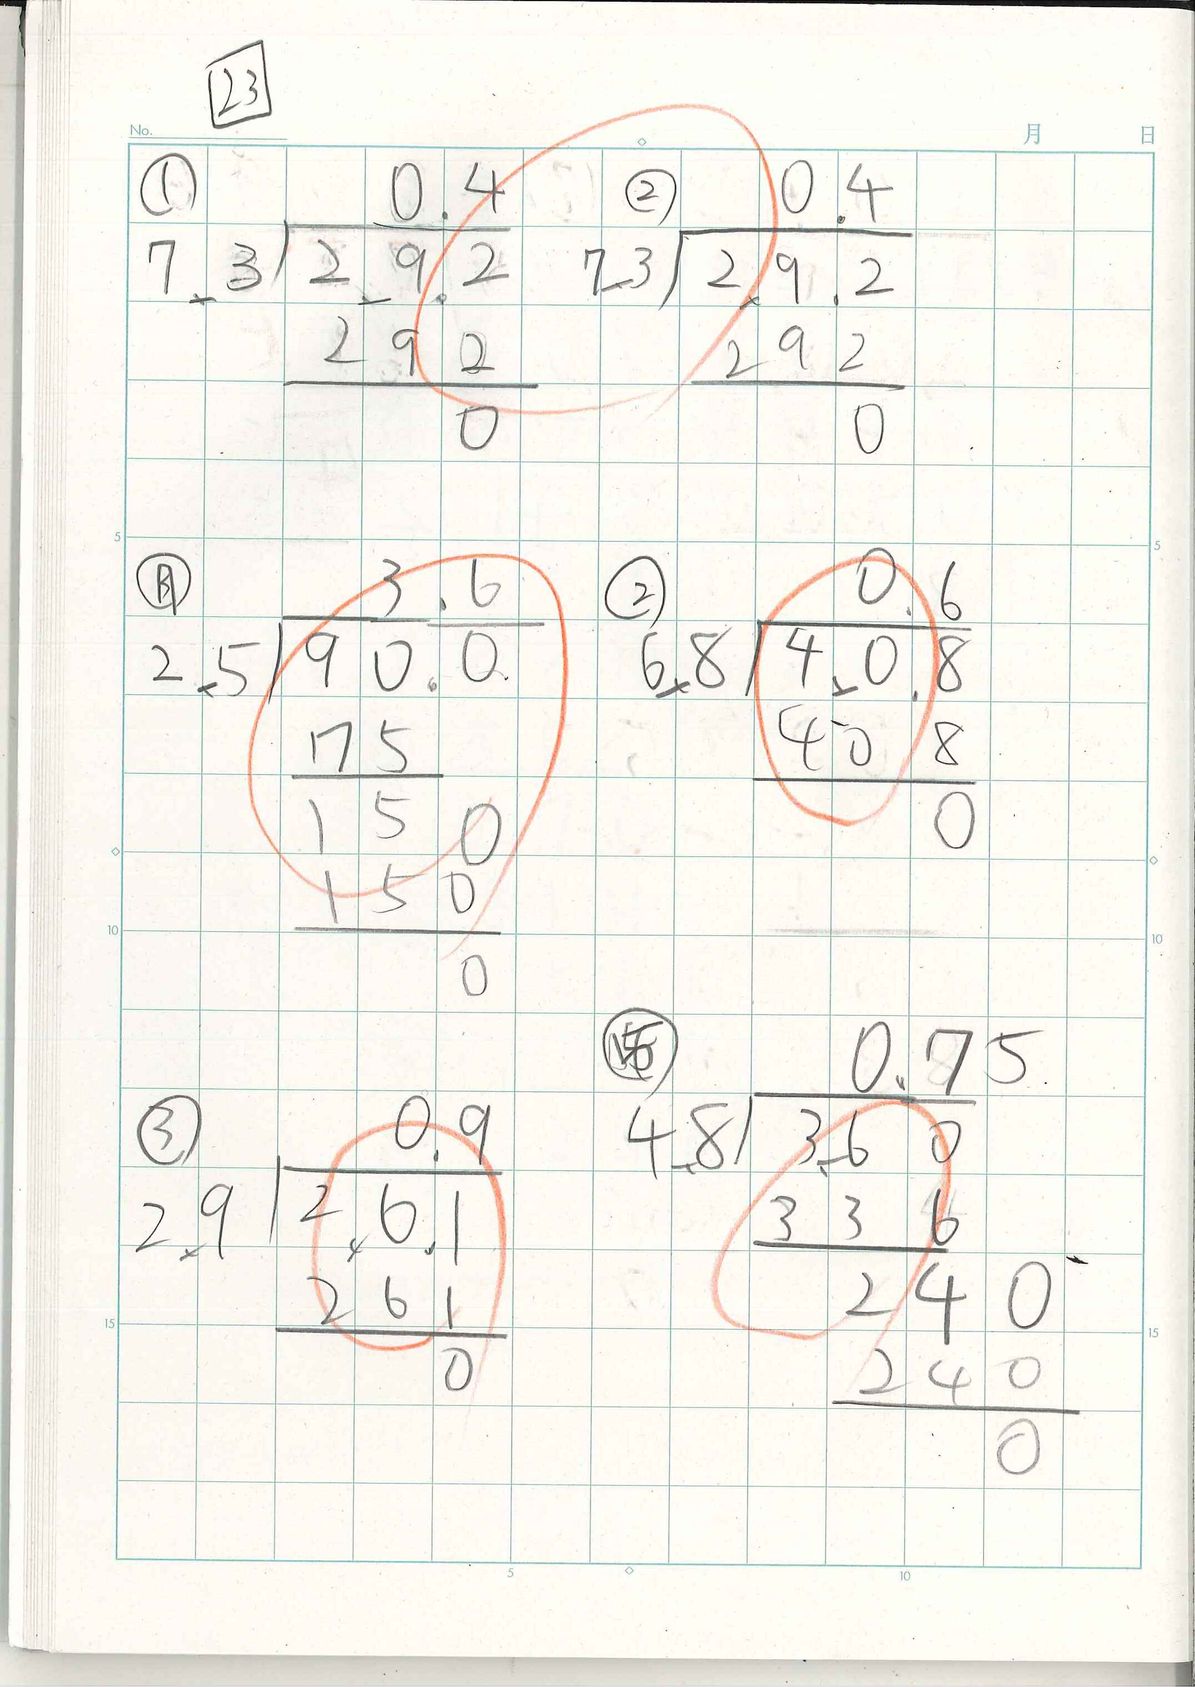 23
No. 月 日
① 0.4
7.3)2.9.2
292
0
② 0.4
7.3)2.9.2
292
0
5 5
3.6
2.5)90.0
175
150
150
0
② 0.6
6.8)4.0.8
408
0
10 10
0.75
4.8)3.60
336
240
240
0
③ 0.9
2.9)2.6.1
261
0
15 15
5 10